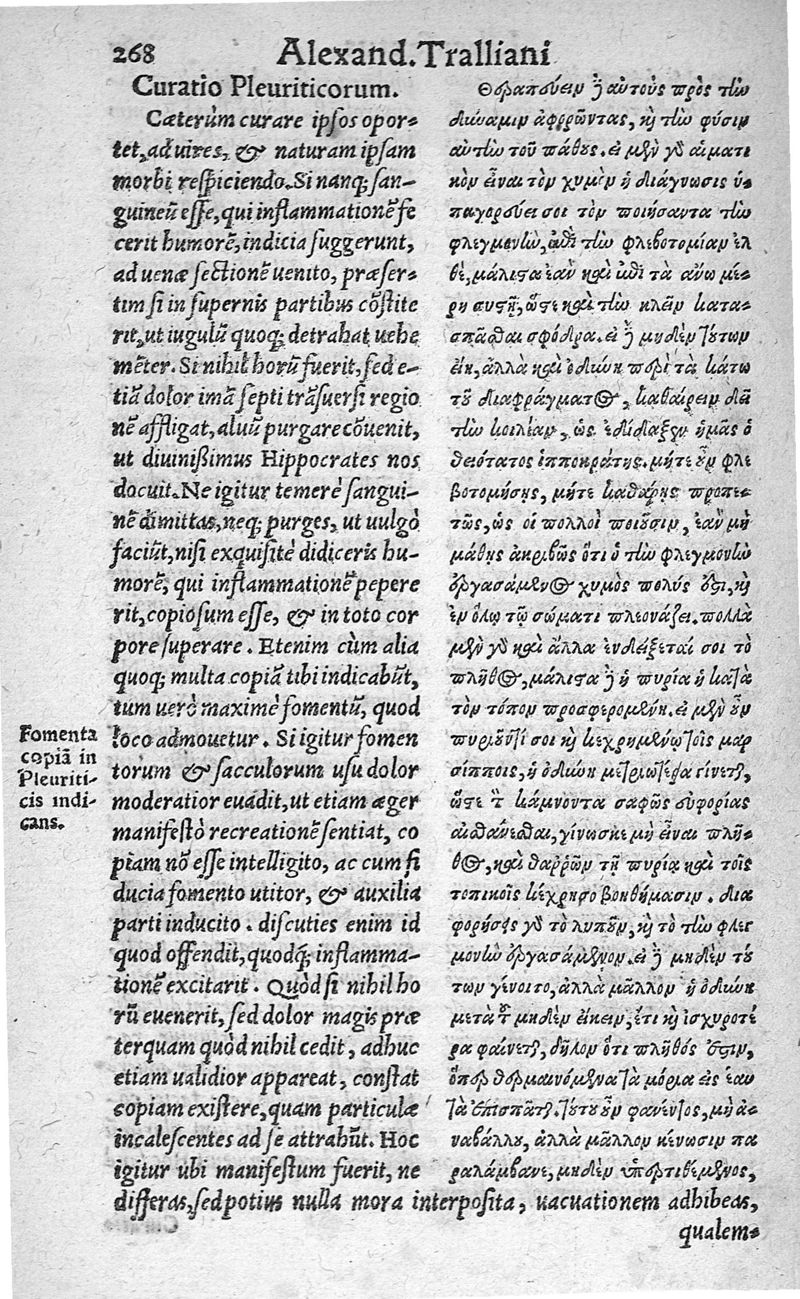 268
Alexand. Tralliani
Curatio Pleuriticorum.
Cæterùm curare ipsos opor-
tet, ad uires, & naturam ipsam
morbi respiciendo. Si nanq; san-
guineũ esse, qui inflammationẽ fe
cerit humorẽ, indicia suggerunt,
ad uenæ sectionẽ uenito, præser-
tim si in supernis partibus cõstite
rit, ut iugulũ quoq; detrahat uehe
mẽter. Si nihil horũ fuerit, sed e-
tiã dolor imã septi trãsuersi regio
nẽ affligat, aluũ purgare cõuenit,
ut diuinißimus Hippocrates nos
docuit. Ne igitur temerè sangui-
nẽ dimittas, neq; purges, ut uulgò
faciũt, nisi exquisitè didiceris hu-
morẽ, qui inflammationẽ pepere
rit, copiosum esse, & in toto cor
pore superare. Etenim cùm alia
quoq; multa copiã tibi indicabũt,
tum uerò maximè fomentũ, quod
loco admouetur. Si igitur fomen
torum & sacculorum usu dolor
moderatior euadit, ut etiam æger
manifestò recreationẽ sentiat, co
piam nõ esse intelligito, ac cum fi
ducia fomento utitor, & auxilia
parti inducito. discuties enim id
quod offendit, quodq́; inflamma-
tionẽ excitarit. Quòd si nihil ho
rũ euenerit, sed dolor magis præ
terquam quòd nihil cedit, adhuc
etiam ualidior appareat, constat
copiam existere, quam particulæ
incalescentes ad se attrahũt. Hoc
igitur ubi manifestum fuerit, ne
differas, sed potius nulla mora interposita, uacuationem adhibeas,
qualem-
Fomenta
copiã in
Pleuriti-
cis indi-
cans.
Θεραπεύειν δὲ αὐτοὺς πρὸς τὴν
δύναμιν ἀφορῶντας, καὶ τὴν φύσιν
αὐτὴν τοῦ πάθους. εἰ μὲν γὰρ αἱματι
κὸν εἶναι τὸν χυμὸν ἡ διάγνωσις ὑ-
παγορεύει σοι τὸν ποιήσαντα τὴν
φλεγμονὴν, ἐπὶ τὴν φλεβοτομίαν ἐλ
θὲ, μάλιστα ἐὰν καὶ ἐπὶ τὰ ἄνω μέ-
ρη συστῇ, ὥστε καὶ τὴν κλεῖν κατα-
σπᾶσθαι σφόδρα. εἰ δὲ μηδὲν τούτων
εἴη, ἀλλὰ καὶ ὀδύνη περὶ τὰ κάτω
τοῦ διαφράγματος, καθαίρειν δεῖ
τὴν κοιλίαν, ὡς ἐδίδαξεν ἡμᾶς ὁ
θειότατος ἱπποκράτης. μήτε οὖν φλε
βοτομήσῃς, μήτε καθάρῃς προπε-
τῶς, ὡς οἱ πολλοὶ ποιοῦσιν, ἐὰν μὴ
μάθῃς ἀκριβῶς ὅτι ὁ τὴν φλεγμονὴν
ἐργασάμενος χυμὸς πολύς ἐστι, καὶ
ἐν ὅλῳ τῷ σώματι πλεονάζει. πολλὰ
μὲν γὰρ καὶ ἄλλα ἐνδείξεταί σοι τὸ
πλῆθος, μάλιστα δὲ ἡ πυρία ἡ κατὰ
τὸν τόπον προσφερομένη. εἰ μὲν οὖν
πυριῶντί σοι καὶ κεχρημένῳ τοῖς μαρ
σίπποις, ἡ ὀδύνη μετριωτέρα γίνεται,
ὥστε τὸν κάμνοντα σαφῶς εὐφορίας
αἰσθάνεσθαι, γίνωσκε μὴ εἶναι πλῆ-
θος, καὶ θαῤῥῶν τῇ πυρίᾳ καὶ τοῖς
τοπικοῖς κέχρησο βοηθήμασιν. δια
φορήσεις γὰρ τὸ λυποῦν, καὶ τὸ τὴν φλεγ
μονὴν ἐργασάμενον. εἰ δὲ μηδὲν τού
των γένοιτο, ἀλλὰ μᾶλλον ἡ ὀδύνη
μετὰ τοῦ μηδὲν εἴκειν, ἔτι καὶ ἰσχυροτέ
ρα φαίνεται, δῆλον ὅτι πλῆθός ἐστιν,
ὅπερ θερμαινόμενα τὰ μόρια εἰς ἑαυ
τὰ ἐπισπᾶται. τούτου οὖν φανέντος, μὴ ἀ-
ναβάλλου, ἀλλὰ μᾶλλον κένωσιν πα
ραλάμβανε, μηδὲν ὑπερτιθέμενος,